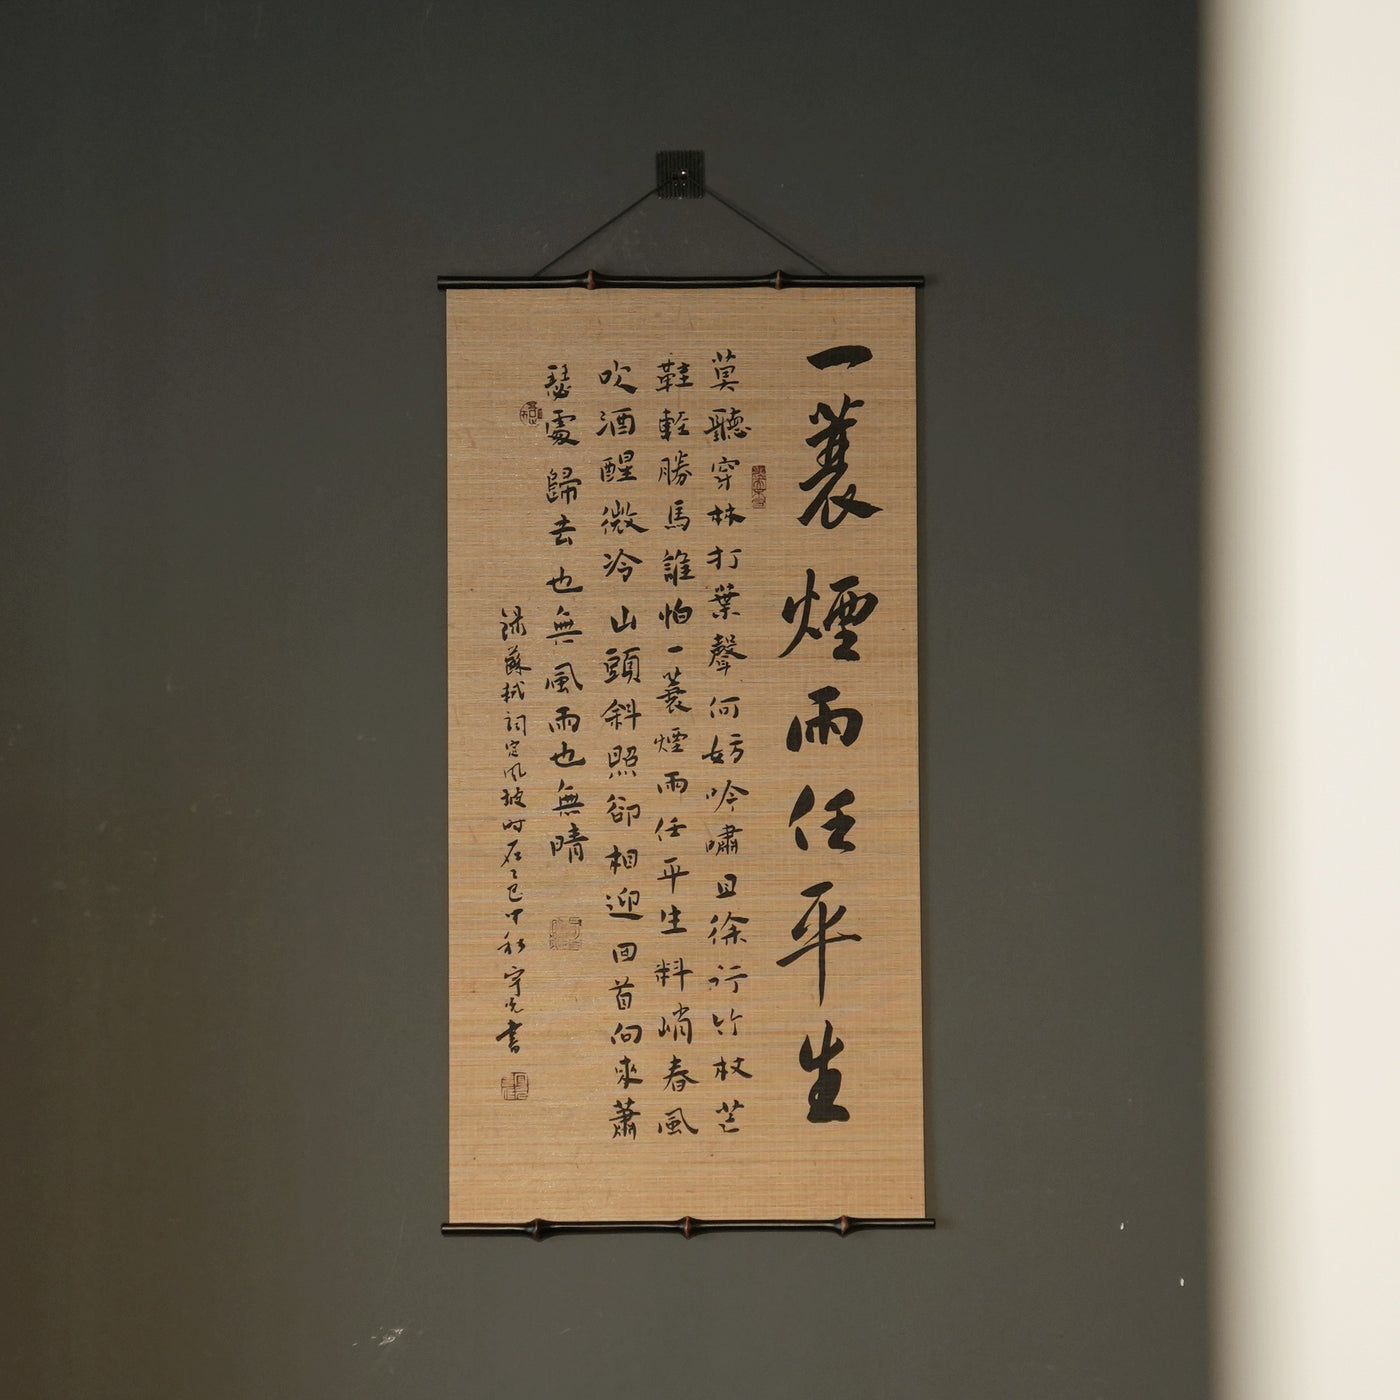 一蓑煙雨任平生
莫聽穿林打葉聲何妨吟嘯且徐行竹杖芒
鞋輕勝馬誰怕一蓑煙雨任平生料峭春風
吹酒醒微冷山頭斜照卻相迎回首向來蕭
瑟處歸去也無風雨也無晴
録蘇軾詞定風坡时在乙巳中秋宇光書